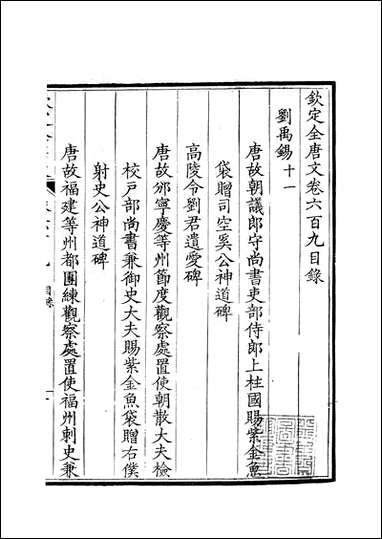 欽定全唐文卷六百九目錄
劉禹錫十一
唐故朝議郎守尚書吏部侍郎上柱國賜紫金魚
袋贈司空奚公神道碑
高陵令劉君遺愛碑
唐故邠寧慶等州節度觀察處置使朝散大夫檢
校戶部尚書兼御史大夫賜紫金魚袋贈右僕
射史公神道碑
唐故福建等州都團練觀察處置使福州刺史兼
目錄
一